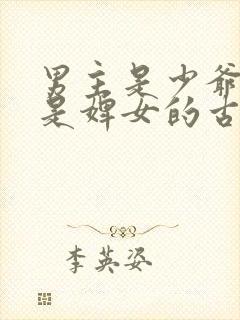 男主是少爷
是婢女的古
李英姿